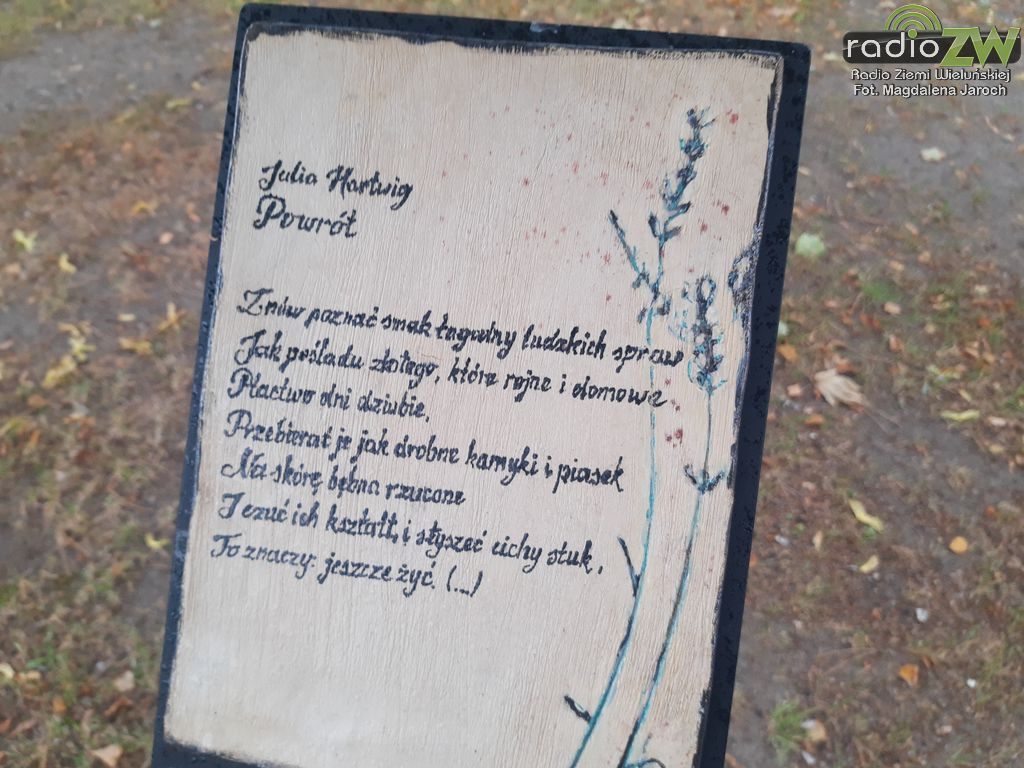 radioZW
Radio Ziemi Wieluńskiej
Fot. Magdalena Jaroch
Julia Hartwig
Powrót
Znów poznać smak łagodny ludzkich spraw
Jak pośladu złotego, które rojne i domowe
Ptactwo dni dziubie,
Przebierać je jak drobne kamyki i piasek
Na skórę bębna rzucone
I czuć ich kształt, i słyszeć cichy stuk,
To znaczy: jeszcze żyć. (...)